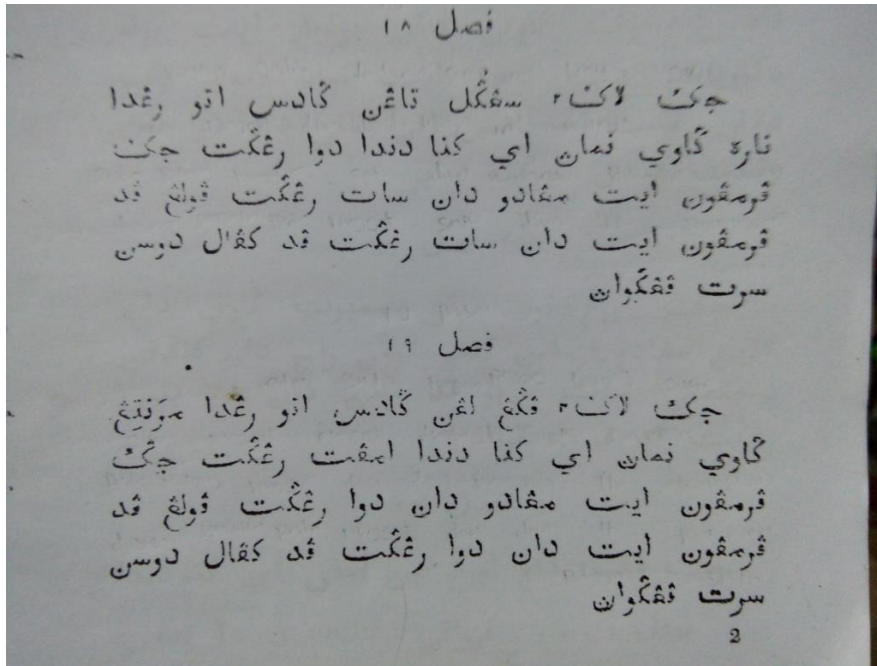 فصل ١٨
جك لاك٢ سڠݢل تاڠن ݢادس اتو رڠدا
نارە ݢاوي نمان اي كنا دندا دوا رڠݢت جك
ڤرمڤون ايت مڠادو دان سات رڠݢت ڤولڠ ڤد
ڤرمڤون ايت دان سات رڠݢت ڤد كڤال دوسن
سرت ڤڠݢوان
فصل ١٩
جك لاك٢ ڤݢڠ لڠن ݢادس اتو رڠدا مرنتڠ
ݢاوي نمان اي كنا دندا امڤت رڠݢت جك
ڤرمڤون ايت مڠادو دان دوا رڠݢت ڤولڠ ڤد
ڤرمڤون ايت دان دوا رڠݢت ڤد كڤال دوسن
سرت ڤڠݢوان
2